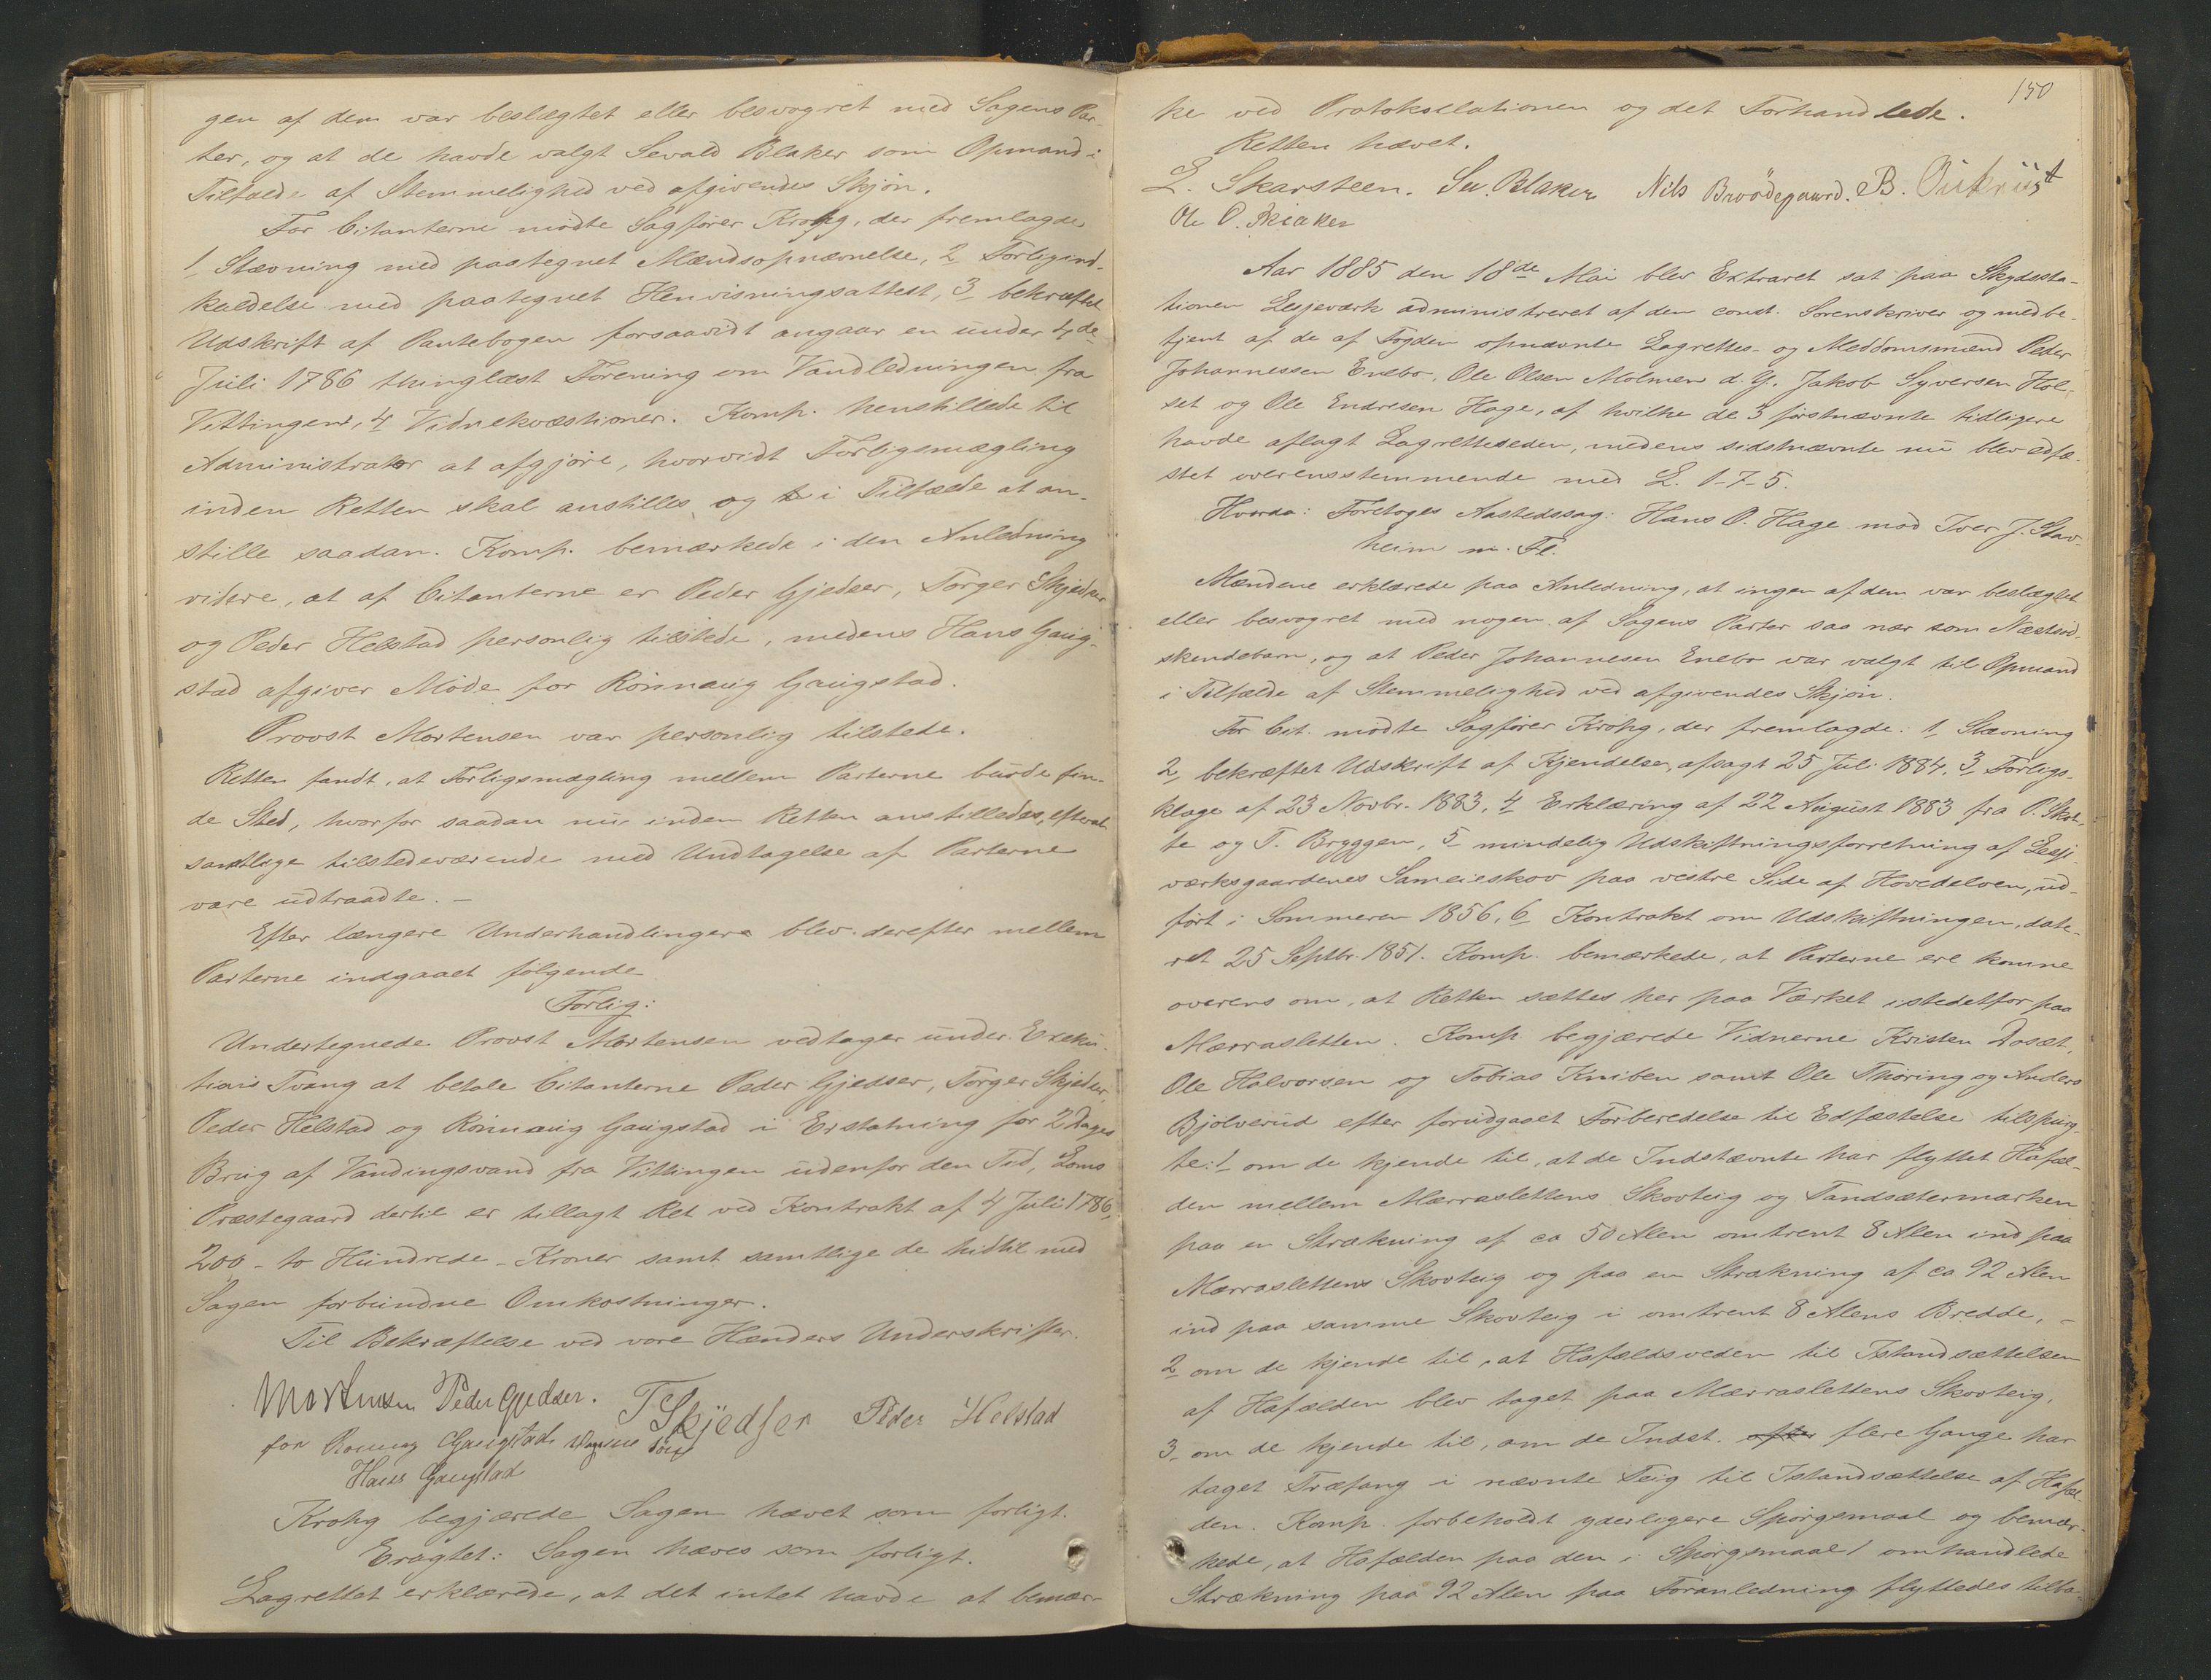 gen af dem var beslægtet eller besvogret med Sagens Par-
ter, og at de havde valgt Sevald Blaker som Opmand i
Tilfælde af Stemmelighed ved afgivendes Skjøn.
For Citanterne mødte Sagfører Krohg, der fremlagde
1 Stævning med paategnet Mændsopnævnelse, 2 Forligsind-
kaldelse med paategnet Henvisningsattest, 3 bekræftet
Udskrift af Pantebogen forsaavidt angaar en under 4de
Juli 1786 thinglæst Forening om Vandledningen fra
Vittingen, 4 Vidnekvæstioner. Komp. henstillede til
Administrator at afgjøre, hvorvidt Forligsmægling
inden Retten skal anstilles og i Tilfælde at an-
stille saadan. Komp. bemærkede i den Anledning
videre, at af Citanterne er Peder Gjedser, Torger Skjedser
og Peder Helstad personlig tilstede, medens Hans Gaug-
stad afgiver Møde for Rønnaug Gaugstad.
Provst Mortensen var personlig tilstede.
Retten fandt, at Forligsmægling mellem Parterne burde fin-
de Sted, hvorfor saadan nu inden Retten anstilledes, efterat
samtlige tilstedeværende med Undtagelse af Parterne
vare udtraadte. –
Efter længere Underhandlinger blev derefter mellem
Parterne indgaaet følgende
Forlig:
Undertegnede Provst Mortensen vedtager under Exeku-
tions Tvang at betale Citanterne Peder Gjedser, Torger Skjedser,
Peder Helstad og Rønnaug Gaugstad i Erstatning for 2 Dages
Brug af Vandingsvand fra Vittingen udenfor den Tid, Loms
Præstegaard dertil er tillagt Ret ved Kontrakt af 4 Juli 1786,
200 – to Hundrede – Kroner samt samtlige de hidtil med
Sagen forbundne Omkostninger.
Til Bekræftelse ved vore Hænders Underskrifter.
Mortensen Peder Gjedser. T Skjedser Peder Helstad
for Ronnug Gaugstads
Hans Gaugstad
Krohg begjærede Sagen hævet som forligt.
Eragtet: Sagen hæves som forligt.
Lagrettet erklærede, at det intet havde at bemær-
150
ke ved Protokollationen og det Forhandlede.
Retten hævet.
L. Skarsteen. Sev. Blaker Nils Brøødegaard. B.
Ole O. Blaker
Aar 1885 den 18de Mai blev Extraret sat paa Skydssta-
tionen Lesjeværk administreret af den const. Sorenskriver og medbe-
tjent af de af Fogden opnævnte Lagrettes- og Meddomsmænd Peder
Johannessen Enebo, Ole Olsen Mølmen d. Y. Jakob Syversen Hol-
set og Ole Endresen Hage, af hvilke de 3 førstnævnte tidligere
havde aflagt Lagretteseden, medens sidstnævnte nu blev edfæ-
stet overensstemmende med L. 1-7-5.
Hvorda: Foretoges Aastedssag: Hans O. Hage mod Iver J. Stav-
heim m. Fl.
Mændene erklærede paa Anledning, at ingen af dem var beslægtet
eller besvogret med nogen af Sagens Parter saa nær som Næstsød-
skendebarn, og at Peder Johannesen Enebo var valgt til Opmand
i Tilfælde af Stemmelighed ved afgivendes Skjøn.
For Cit. mødte Sagfører Krohg, der fremlagde: 1 Stævning
2 bekræftet Udskrift af Kjendelse, afsagt 25 Juli 1884, 3 Forligs-
klage af 23 Novbr. 1883, 4 Erklæring af 22 August 1883 fra O. Skot-
te og T. Bryggen, 5 mindelig Udskiftningsforretning af Lesje-
værksgaardenes Sameieskov paa vestre Side af Hovedelven, ud-
ført i Sommeren 1856, 6 Kontrakt om Udskiftningen, date-
ret 25 Septbr. 1851. Komp. bemærkede, at Parterne ere komne
overens om, at Retten sættes her paa Værket istedetfor paa
Mærrasletten. Komp. begjærede Vidnerne Kristen Dosæt,
Ole Halvorsen og Tobias Kniben samt Ole Thoring og Anders
Bjølverud efter forudgaaet Forberedelse til Edfæstelse tilspurg-
te: 1 om de kjende til, at de Indstævnte har flyttet Hafæl-
den mellem Mærraslettens Skovteig og Tandsætermarken
paa en Strækning af ca 50 Alen omtrent 8 Alen ind paa
Mærraslettens Skovteig og paa en Strækning af ca 92 Alen
ind paa samme Skovteig i omtrent 8 Alens Bredde, –
2 om de kjende til, at Hafældsveden til Istandsættelsen
af Hafælden blev taget paa Mærraslettens Skovteig,
3 om de kjende til, om de Indst. flere Gange har
taget Træfang i nævnte Teig til Istandsættelse af Hafæl-
den. Komp. forbeholdt yderligere Spørgsmaal og bemær-
kede, at Hafælden paa den i Spørgsmaal 1 omhandlede
Strækning paa 92 Alen paa Foranledning flyttedes tilba-